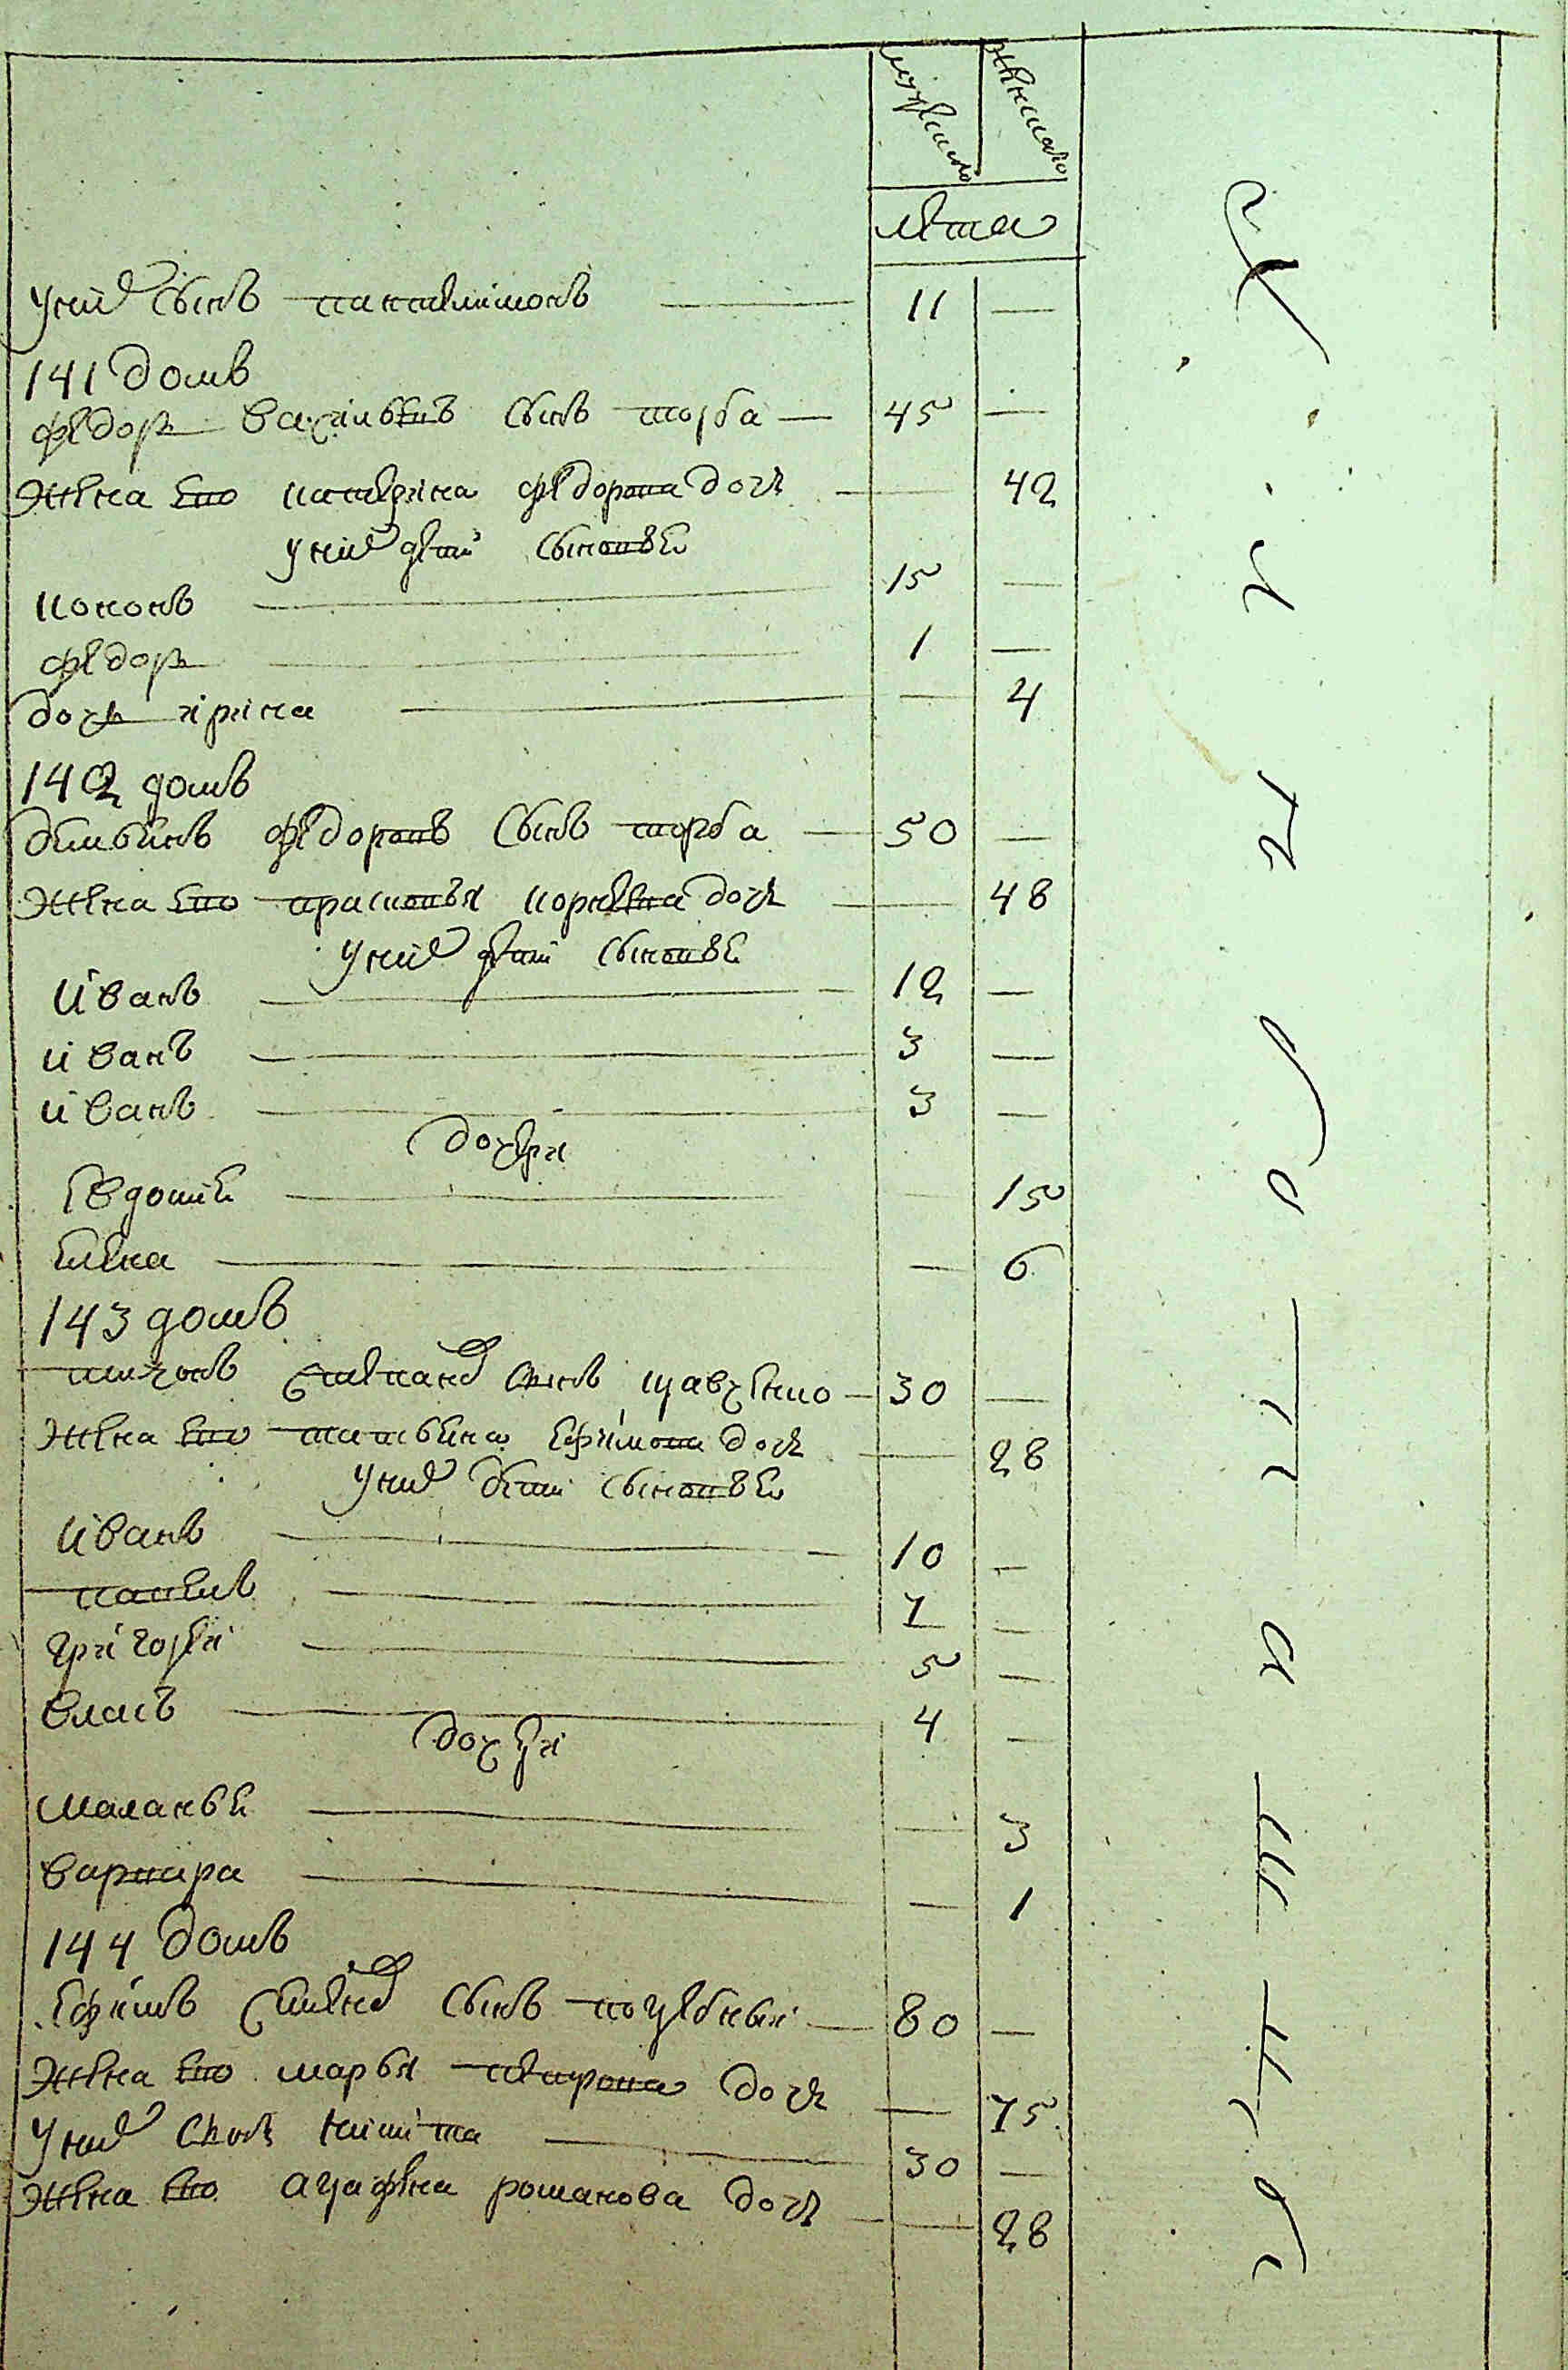 мужеска
женска
лета
у них сынъ пантелимонъ 11
141 домъ
федоръ васильевъ сынъ торба 45
жена ево катерина федорова дочь 42
у них дети сыновья
кононъ 15
федоръ 1
дочь ирина 4
142 домъ
демьянъ федоровъ сынъ торба 50
жена ево прасковья корнеева дочь 48
у них дети сыновья
иванъ 12
иванъ 3
иванъ 3
дочери
евдотия 15
елена 6
143 домъ
тихонъ степанов сынъ 30
жена ево татьяна ефимова дочь 28
у них дети сыновья
иванъ 10
павелъ 7
григорей 5
власъ 4
дочери
маланья 3
варвара 1
144 домъ
ефимъ семенов сынъ 80
жена ево марья петрова дочь 75
у них сынъ никита 30
жена ево агафья романова дочь 28